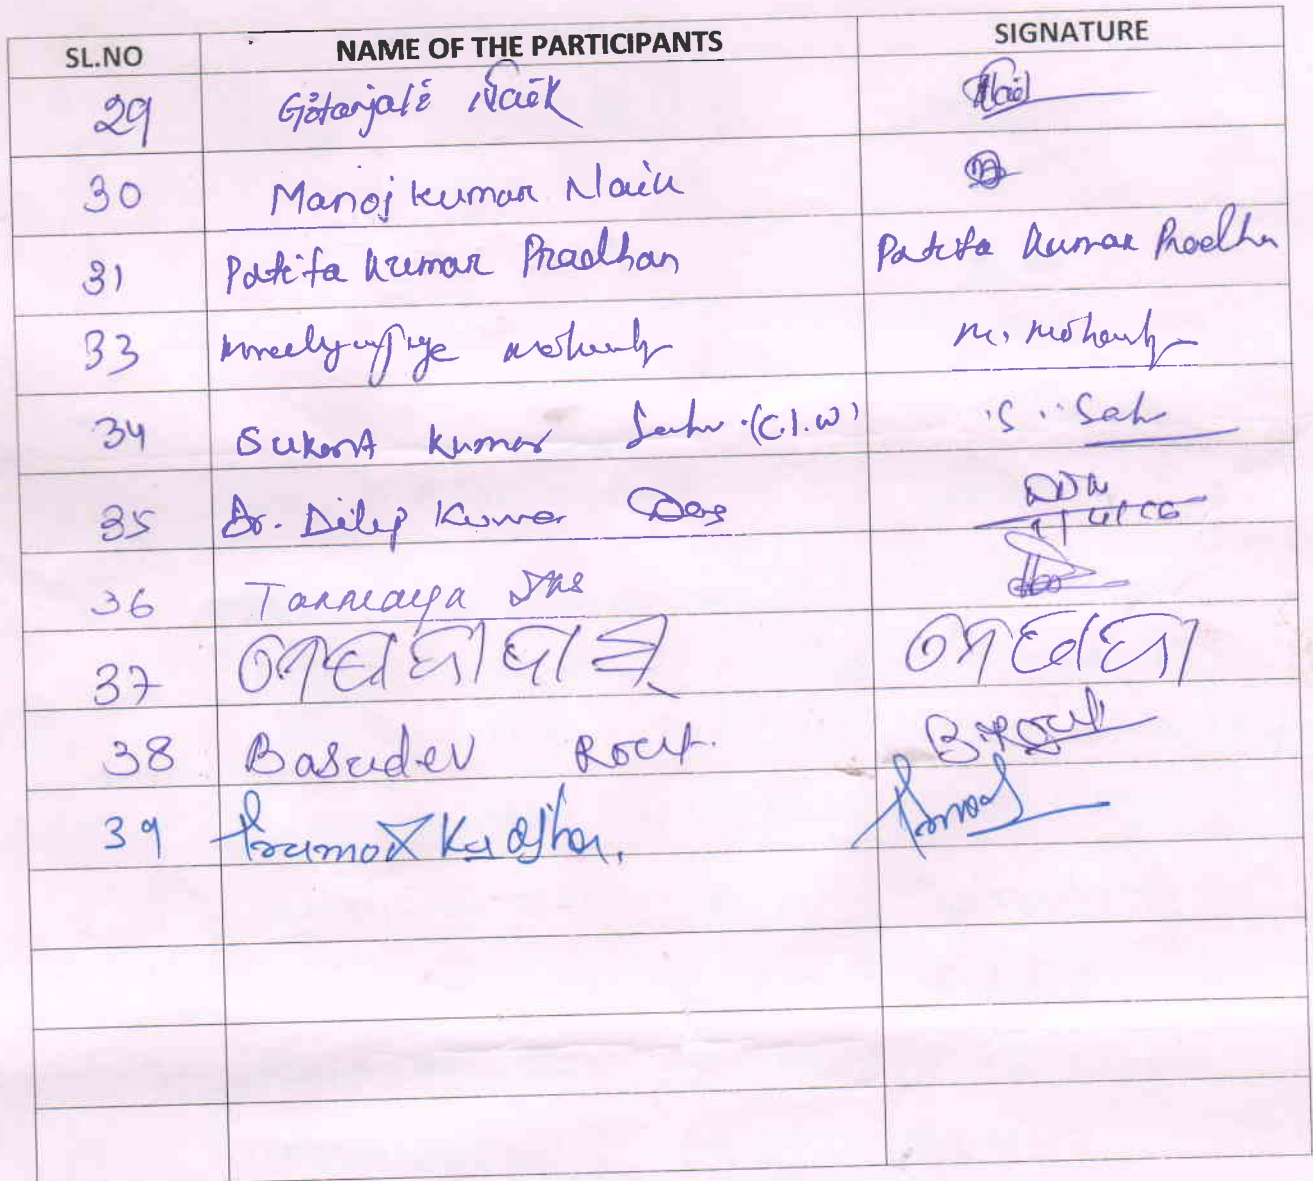 SL.NO NAME OF THE PARTICIPANTS SIGNATURE
29 Gitanjali Naik Naik
30 Manoj Kumar Naik
31 Patita Kumar Pradhan Patita Kumar Pradhan
33 Mohanty M. Mohanty
34 Sukant Kumar Sahu (C.I.W) S. Sahu
35 Dr. Dilip Kumar Das
36 Tanmaya Das
37
38 Basudev Rout. B. Rout
39 Pramod Ku Ojha. Pramod